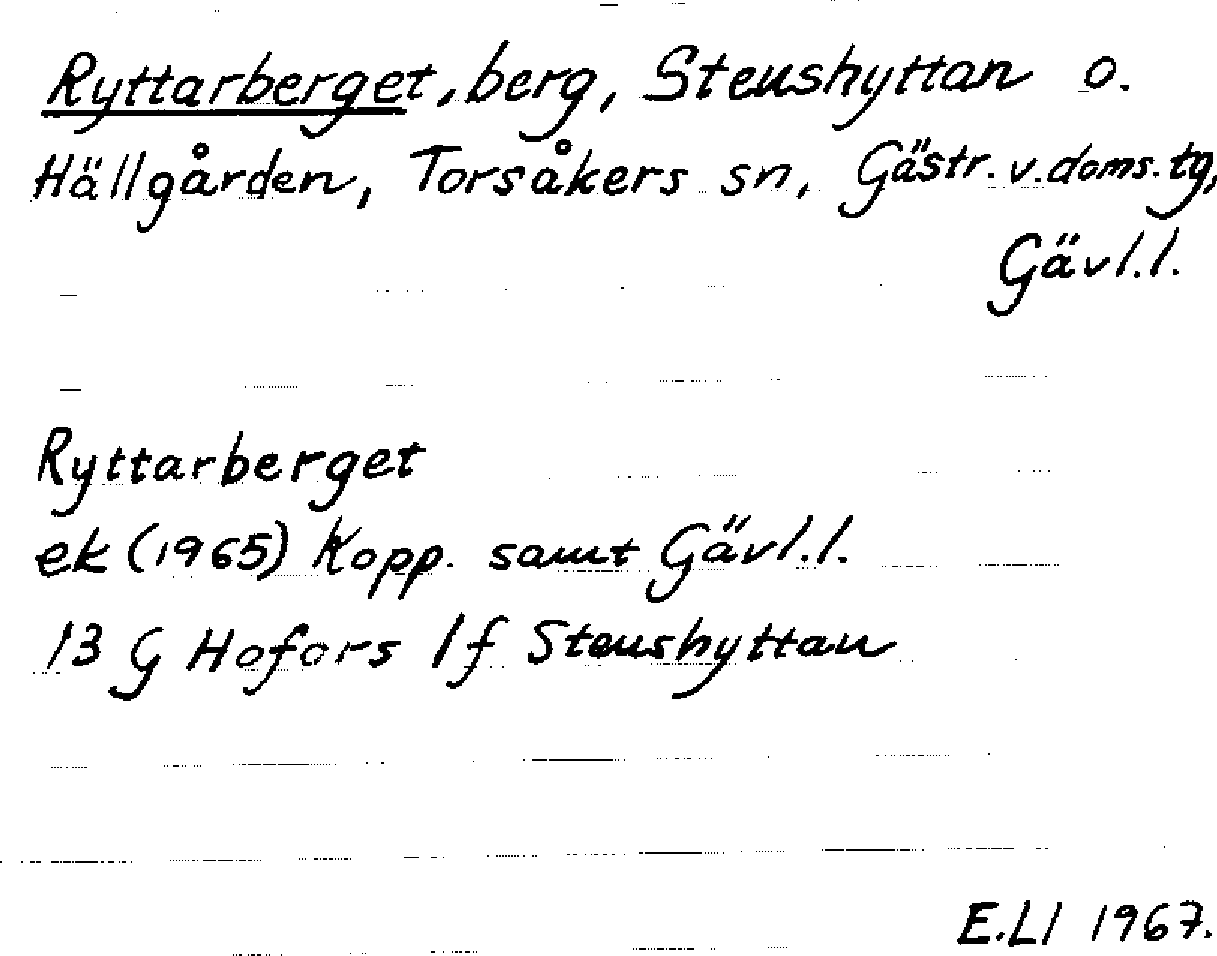 Ryttarberget, berg, Stenshyttan o.
Hällgården, Torsåkers sn, Gästr. v. doms. tg,
Gävl. l.
Ryttarberget
ek (1965) Kopp. samt Gävl. l.
13 G Hofors 1f Stenshyttan
E.Ll 1967.